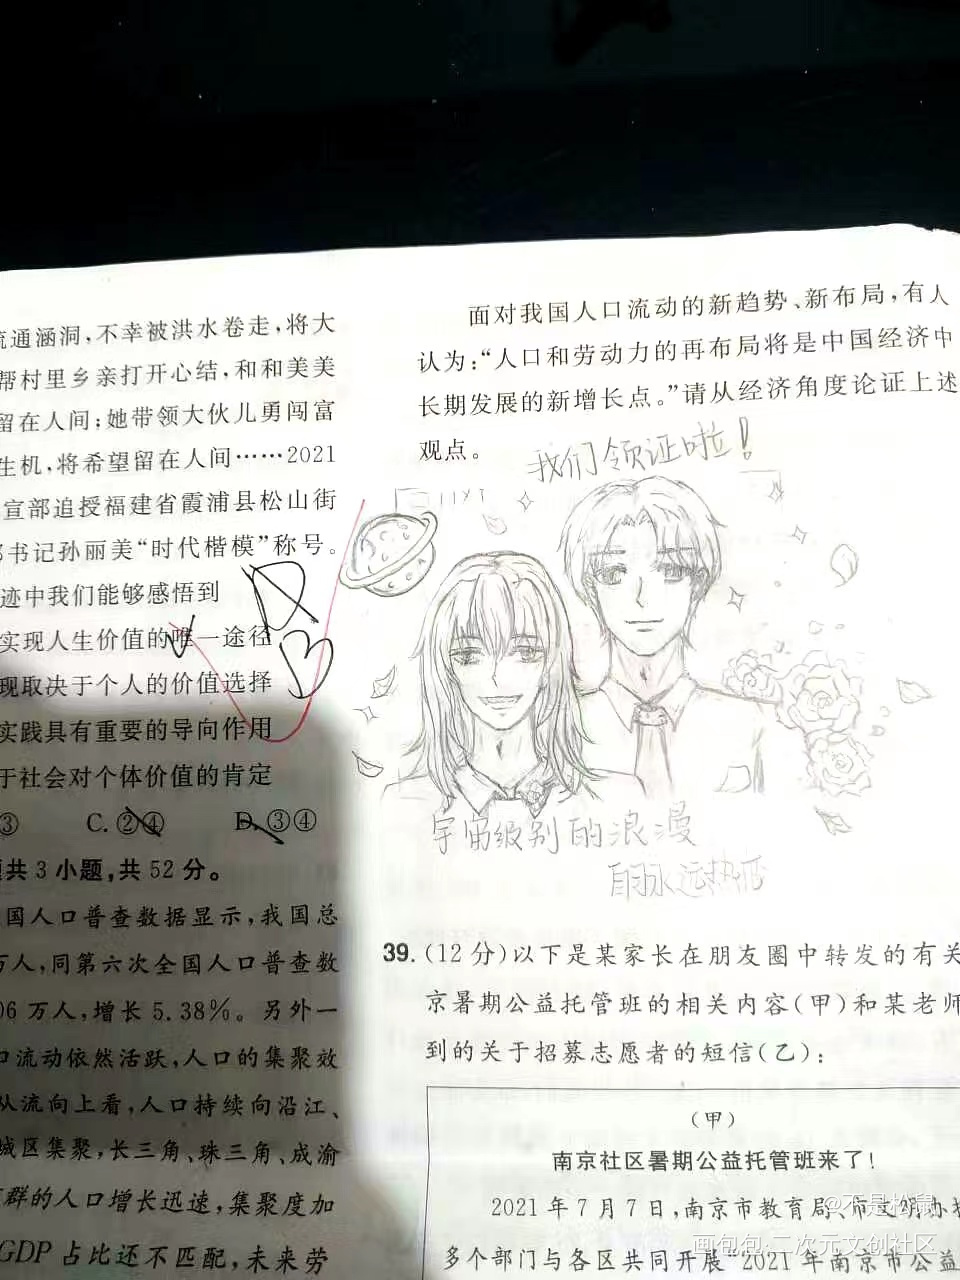 流通涵洞,不幸被洪水卷走,将大
帮村里乡亲打开心结,和和美美
留在人间;她带领大伙儿勇闯富
生机,将希望留在人间……2021
宣部追授福建省霞浦县松山街
书记孙丽美“时代楷模”称号。
迹中我们能够感悟到
实现人生价值的唯一途径
现取决于个人的价值选择
实践具有重要的导向作用
于社会对个体价值的肯定
③ C. ②④ D. ③④
共3小题,共52分。
国人口普查数据显示,我国总
万人,同第六次全国人口普查数
06万人,增长5.38%。另外一
口流动依然活跃,人口的集聚效
从流向上看,人口持续向沿江、
城区集聚,长三角、珠三角、成渝
群的人口增长迅速,集聚度加
GDP占比还不匹配,未来劳
B
面对我国人口流动的新趋势、新布局,有人
认为:“人口和劳动力的再布局将是中国经济中
长期发展的新增长点。”请从经济角度论证上述
观点。
我们领证啦!
宇宙级别的浪漫
永远热恋
39.(12分)以下是某家长在朋友圈中转发的有关
京暑期公益托管班的相关内容(甲)和某老师
到的关于招募志愿者的短信(乙):
(甲)
南京社区暑期公益托管班来了!
2021年7月7日,南京市教育局、市文明办
多个部门与各区共同开展“2021年南京市公益
@不是松鼠
画包包·二次元文创社区